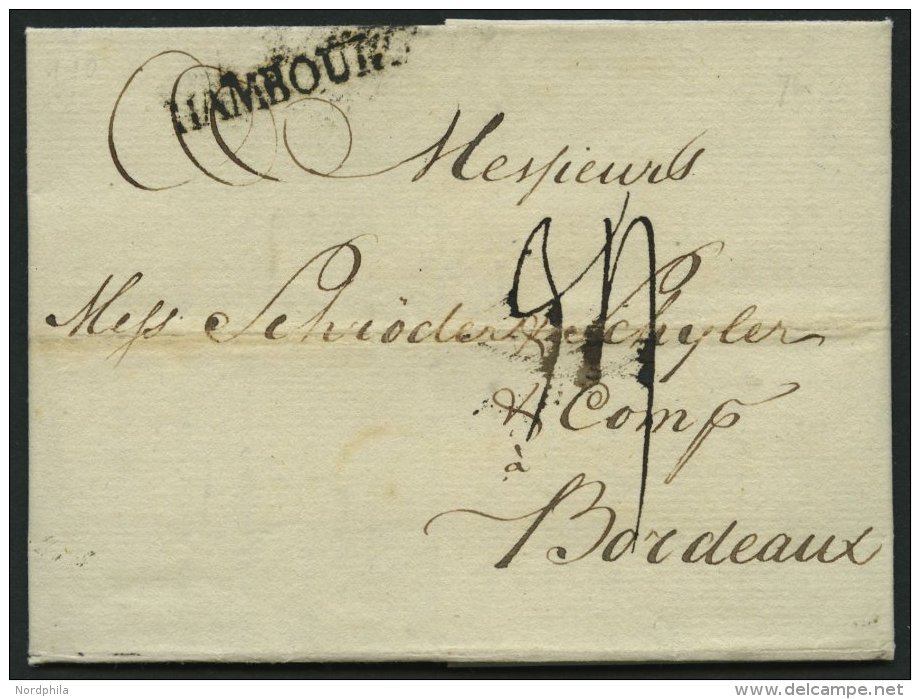 HAMBOURG
Messieurs
Mess Schröder & Schyler
& Comp
à
Bordeaux
Nordphila
delcampe.net